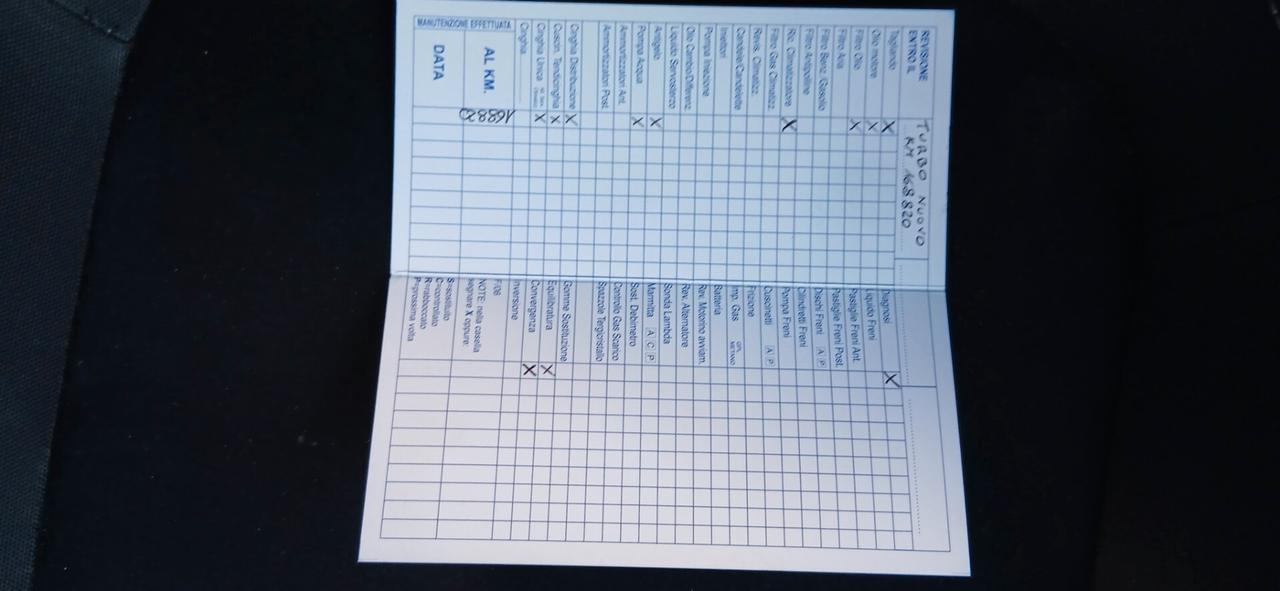 REVISIONE
ENTRO IL
TURBO NUOVO
KM 168820
Tagliando X
Olio motore X
Filtro Olio X
Filtro Aria
Filtro Benz./Gasolio
Filtro Antipolline
Ric. Climatizzatore X
Filtro Gas Climatizz.
Revis. Climatizz.
Candele/Candelette
Iniettori
Pompa Iniezione
Olio Cambio/Differenz.
Liquido Servosterzo
Antigelo X
Pompa Acqua X
Ammortizzatori Ant.
Ammortizzatori Post.
Cinghia Distribuzione X
Cuscin. Tendicinghia X
Cinghia Unica X
Cinghia
MANUTENZIONE EFFETTUATA
AL KM. 168820
DATA
Diagnosi X
Liquido Freni
Pastiglie Freni Ant.
Pastiglie Freni Post.
Dischi Freni A P
Cilindretti Freni
Pompa Freni
Cuscinetti A P
Frizione
Imp. Gas GPL METANO
Batteria
Rev. Motorino avviam.
Rev. Alternatore
Sonda Lambda
Marmitta A C P
Sost. Debimetro
Controllo Gas Scarico
Spazzole Tergicristallo
Gomme Sostituzione
Equilibratura X
Convergenza X
Inversione
F/06
NOTE: nella casella
segnare X oppure:
S=sostituito
C=controllato
R=rabboccato
P=prossima volta